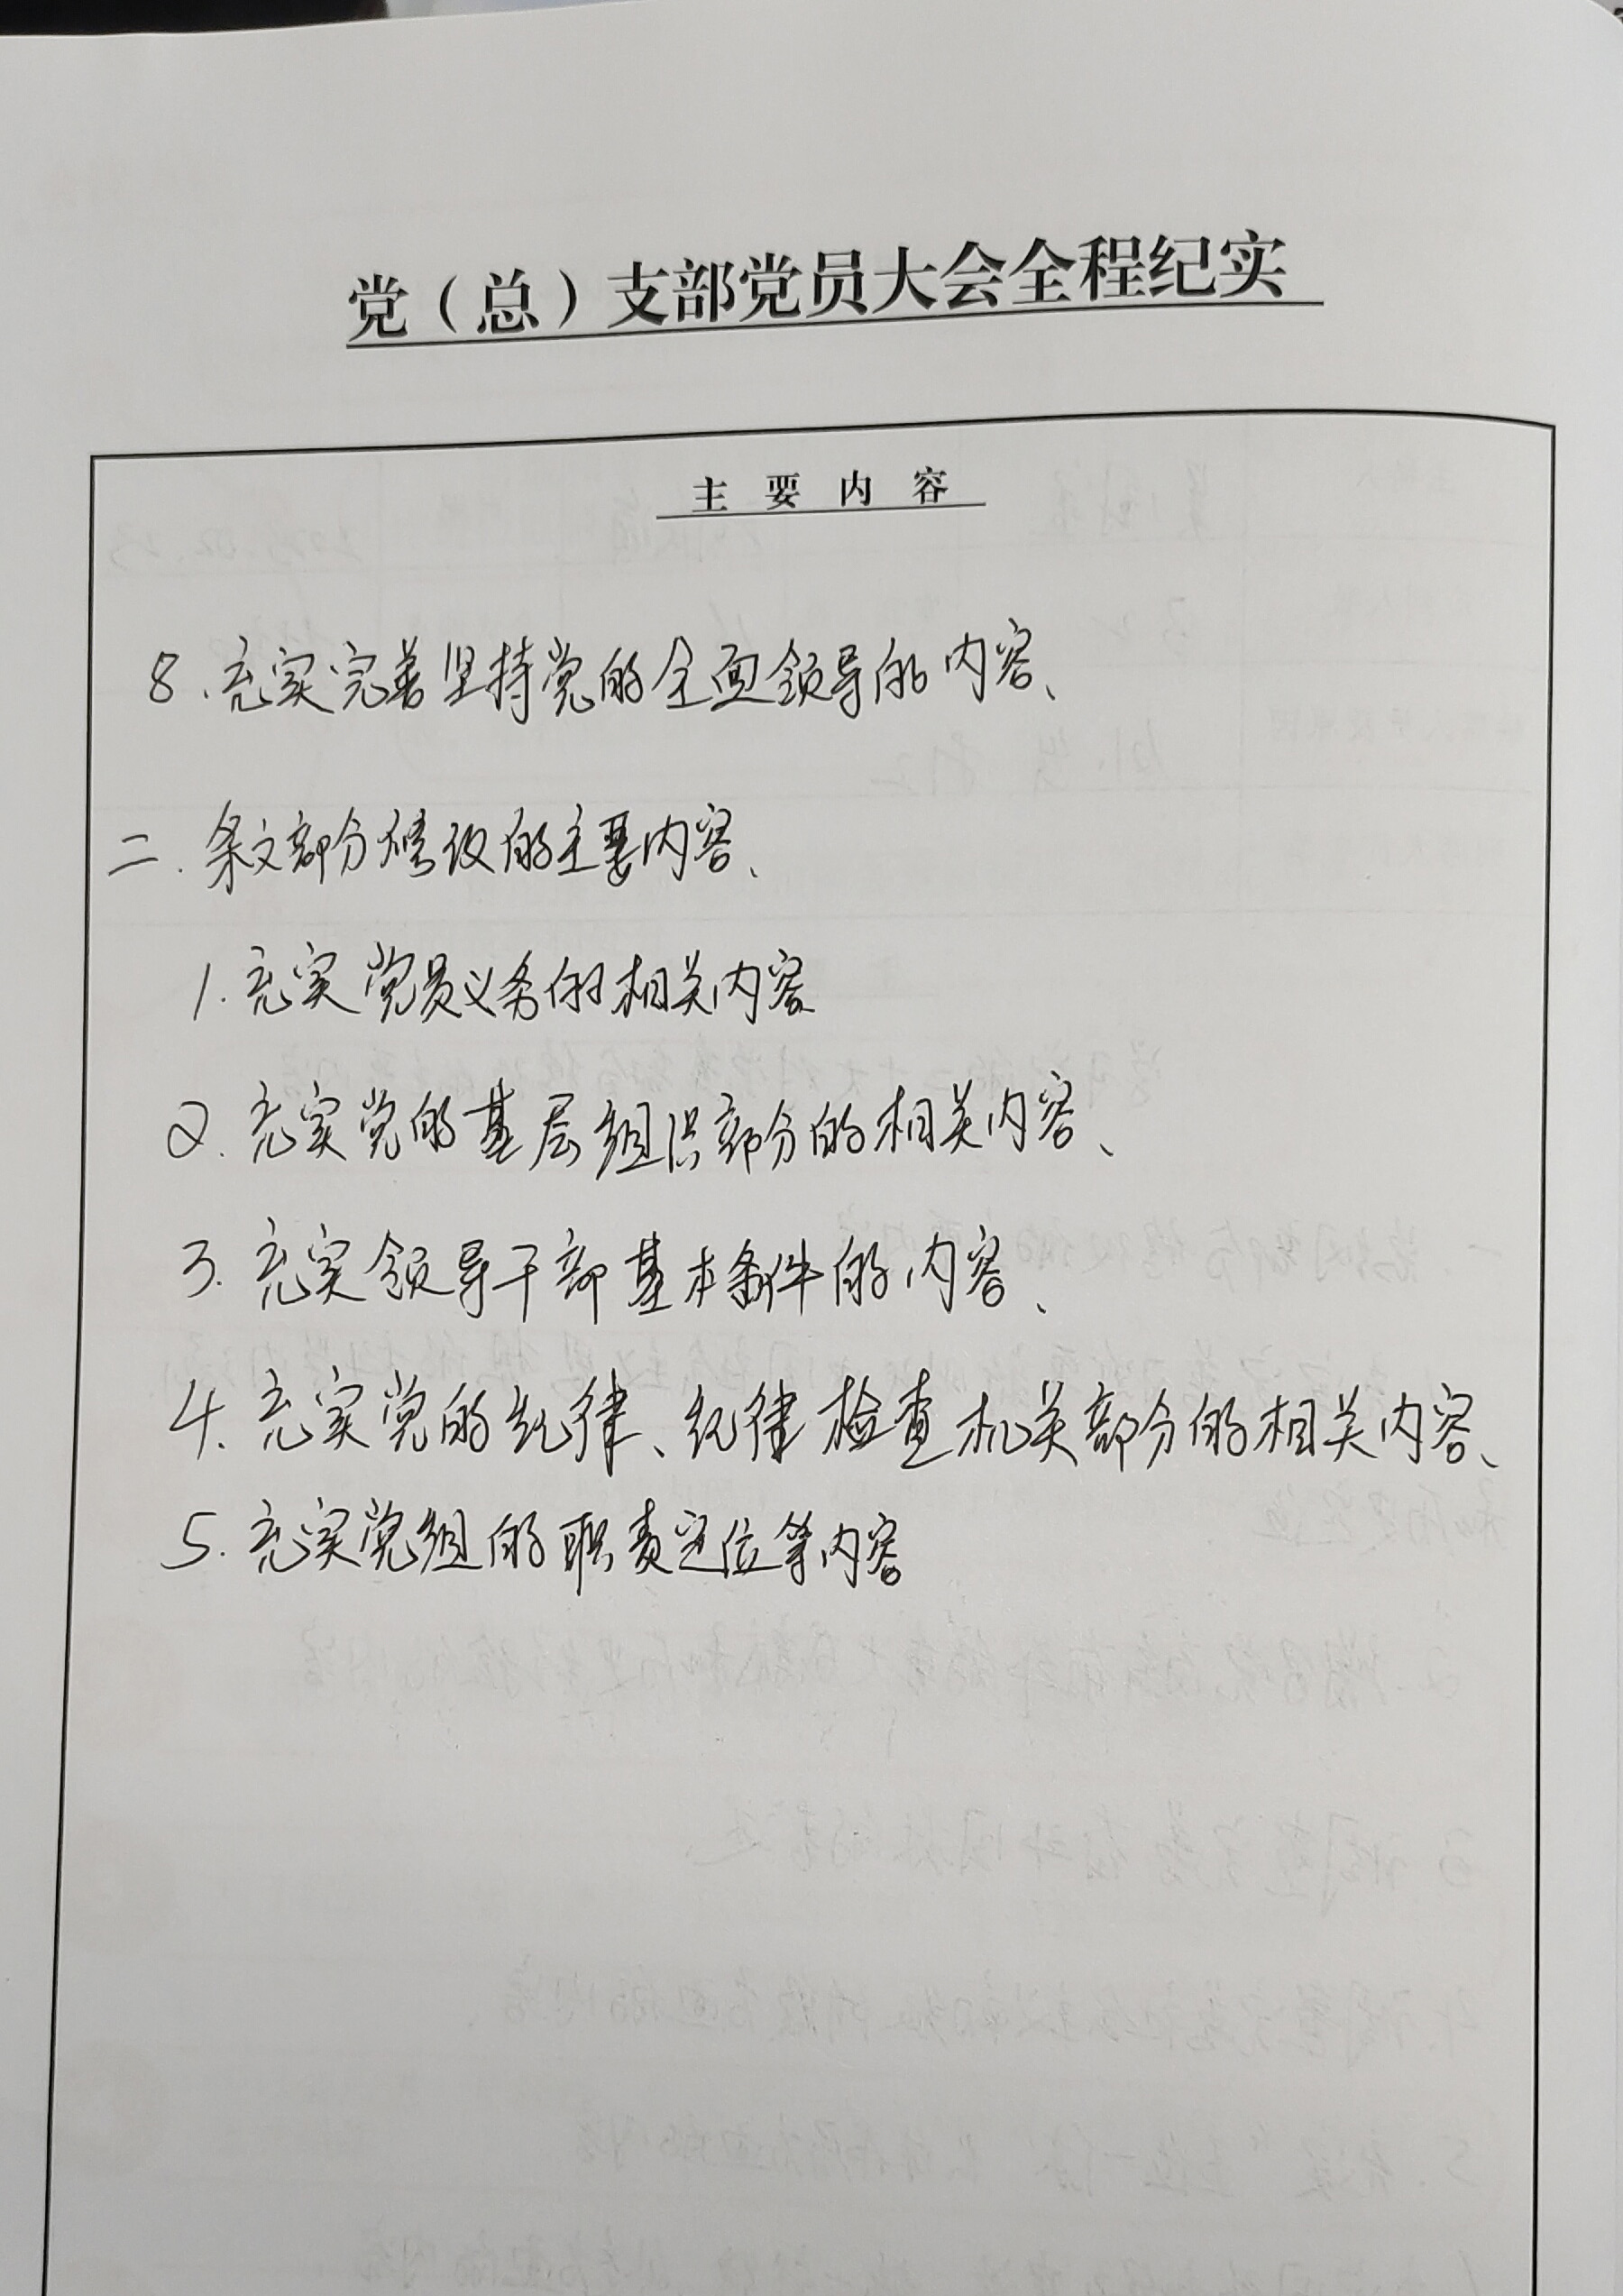 党（总）支部党员大会全程纪实
主要内容
8、充实完善坚持党的全面领导的内容、
二、条文部分修改的主要内容、
1.充实党员义务的相关内容
2.充实党的基层组织部分的相关内容、
3.充实领导干部基本条件的内容、
4.充实党的纪律、纪律检查机关部分的相关内容、
5.充实党组的职责定位等内容